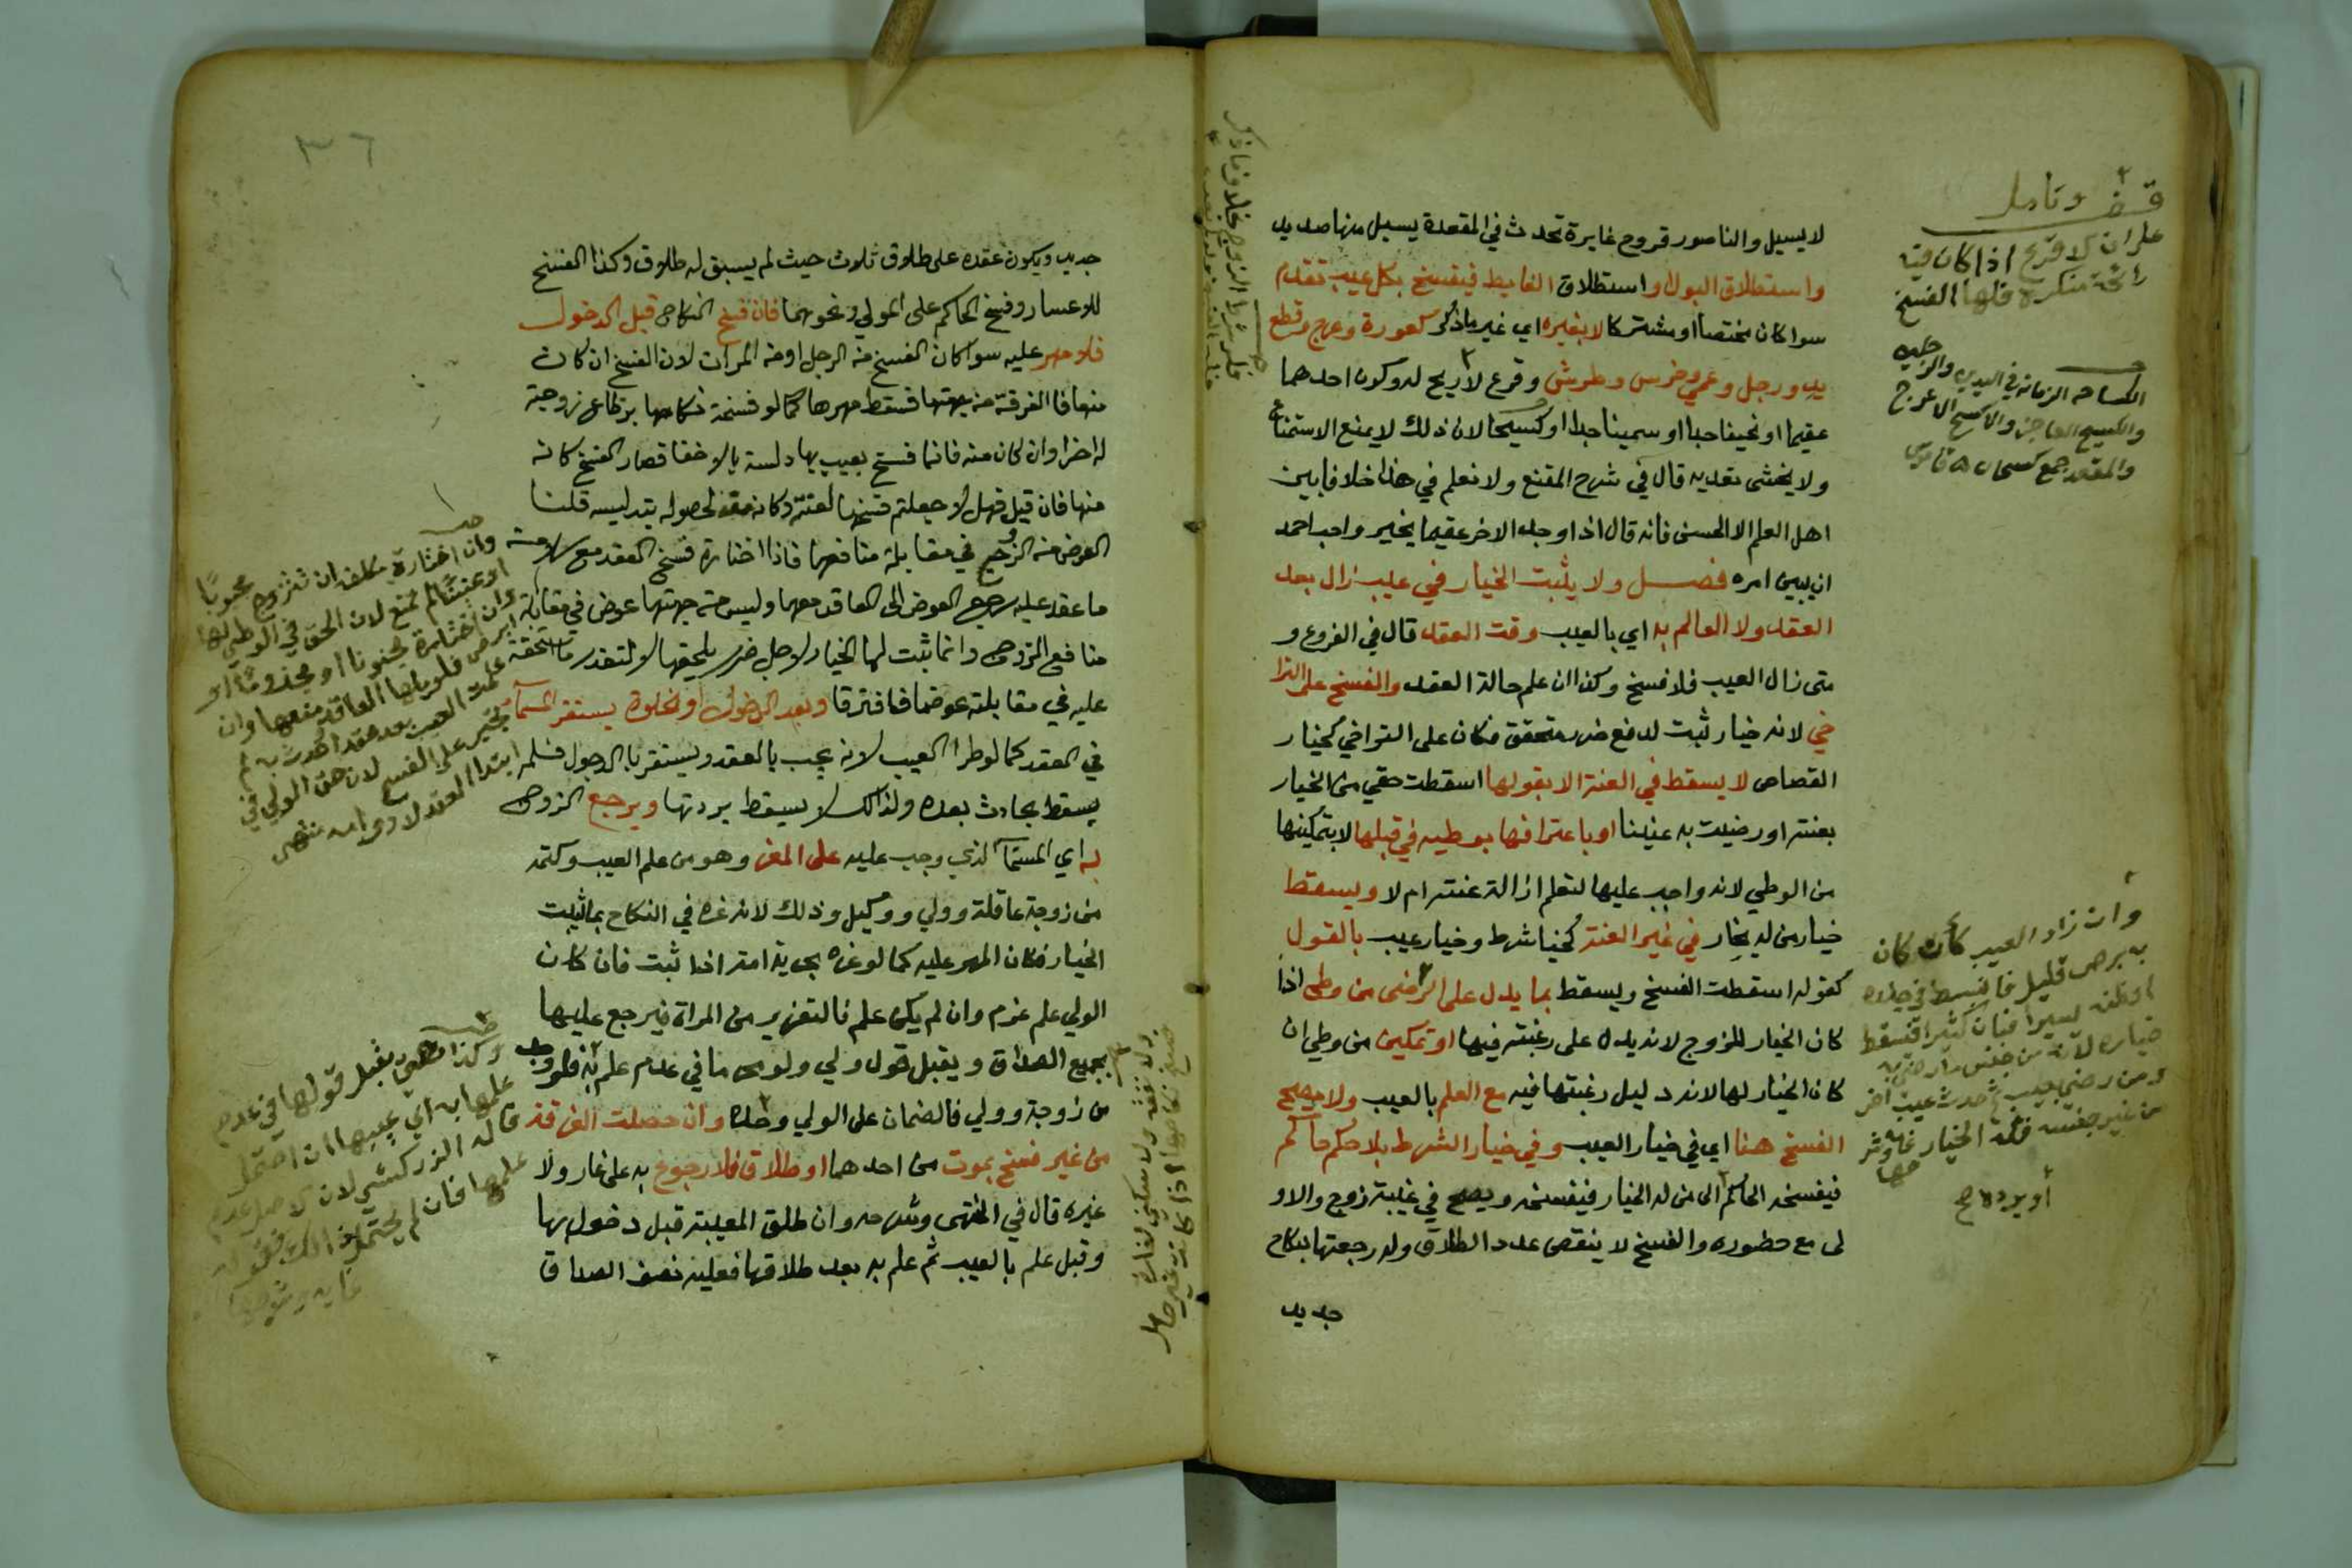 لا يسيل والناصور قروح غايرة تحدث في المقعدة يسيل منها صديد
واستطلاق البول واستطلاق الغايط فيفسخ بكل عيب تقدم
سوا كان مختصا او مشتركا لا بغيره اي غير ما ذكر كعورة وعرج وقطع
يد ورجل وعمي وخرس وطرش وقرع لا ريح له وكون احدهما
عقيما او نحيفا جدا او سمينا جدا او كسيحا لان ذلك لا يمنع الاستمتاع
ولا يخشى تعديه قال في شرح المقنع ولا نعلم في هذا خلافا بين
اهل العلم الا الحسن فانه قال اذا وجد الاخر عقيما يخير واحب احمد
ان يبين امره فصل ولا يثبت الخيار في عيب زال بعد
العقد ولا العالم به اي بالعيب وقت العقد قال في الفروع و
متى زال العيب فلا فسخ وكذا ان علم حالة العقد والفسخ على الترا
خي لانه خيار ثبت لدفع ضرر متحقق فكان على التراخي كخيار
القصاص لا يسقط في العنة الا بقولها اسقطت حقي من الخيار
بعنته او رضيت به عنينا او باعترافها بوطيه في قبلها لا بتمكينها
من الوطي لانه واجب عليها لتعلم ازالة عنته ام لا ويسقط
خيار من له خيار في غير العنة كخيار شرط وخيار عيب بالقول
كقوله اسقطت الفسخ ويسقط بما يدل على الرضى من وطي اذا
كان الخيار للزوج لانه يدل على رغبته فيها او تمكين من وطي ان
كان الخيار لها لانه دليل رغبتها فيه مع العلم بالعيب ولا يصح
الفسخ هنا اي في خيار العيب وفي خيار الشرط بلا حكم حاكم
فيفسخه الحاكم الى من له الخيار فيفسخه ويصح في غيبة زوج والاو
لى مع حضوره والفسخ لا ينقص عدد الطلاق وله رجعتها بنكاح
جديد
قف وتامل
على ان لا قرع اذا كان فيه
رائحة منكرة فلها الفسخ
الكساحه الزمانة في اليدين والرجلين
والكسيح العاجز والاكسح الاعرج
والمقعد جمع كسحان قاموس
وان زاد العيب كأن كان
به برص قليل فانبسط في جلده
او ظنه يسيرا فبان كثيرا فيسقط
خياره لانه من جنس ما رضي به
ومن رضي بعيب ثم حدث عيب اخر
من غير جنسه فله الخيار غايه وشر
حها
أو يرده
٣٦
جديد ويكون عقده على طلاق ثلاث حيث لم يسبق له طلاق وكذا الفسخ
للاعسار وفسخ الحاكم على المولي ونحوهما فان فسخ النكاح قبل الدخول
فلا مهر عليه سوا كان الفسخ من الرجل او من المرات لان الفسخ ان كان
منها فا الفرقة من جهتها فسقط مهرها كما لو فسخة نكاحها برظاع زوجة
له اخرا وان كان منه فانما فسخ بعيب بها دلسة بالاخفا فصار الفسخ كانه
منها فان قيل فهل لا جعلتم فسخها لعنته كانه منه لحصوله بتدليسه قلنا
العوض من الزوج في مقابلة منافعها فاذا اختارة فسخ العقد مع سلامة
ما عقد عليه رجع العوض الى العاقد معها وليس من جهتها عوض في مقابلة
منافع الزوج وانما ثبت لها الخيار لاجل ضرر يلحقها لا لتعذر ما استحقة
عليه في مقابلته عوضا فافترقا وبعد الدخول او الخلوة يستقر المسما
في العقد كما لو طرا العيب لانه يجب بالعقد ويستقر بالدخول فلم
يسقط بحادث بعده ولذالك لا يسقط بردتها ويرجع الزوج
به اي المسما الذي وجب عليه على المغر وهو من علم العيب وكتمه
من زوجة عاقلة وولي ووكيل وذلك لانه غره في النكاح بما يثبت
الخيار فكان المهر عليه كما لو غره بحرية امة اذا ثبت فان كان
الولي علم غرم وان لم يكن علم فالتغرير من المراة فيرجع عليها
بجميع الصداق ويقبل قول ولي ولو محرما في عدم علم به فلو وجد
من زوجة وولي فالضمان على الولي وحده وان حصلت الفرقة
من غير فسخ بموت من احدهما او طلاق فلا رجوع به على غار ولا
غيره قال في المنتهى وشرحه وان طلق المعيبة قبل دخول بها
وقبل علم بالعيب ثم علم به بعد طلاقها فعليه نصف الصداق
وان اختارة مكلفة ان تتزوج مجبوبًا
او عنينًا لم تمنع لان الحق في الوطي لها
وان اختارة مجنونا او مجذومًا او
ابرص فلوليها العاقد منعها وان
علمت العيب بعد عقد او حدث به لم
تجبر على الفسخ لان حق الولي في
ابتدا العقد لا دوامه منتهى
وكذا هي يقبل قولها في عدم
علمها به اي عيبها ان احتمل
قاله الزركشي لان الاصل عدم
علمها فان لم يحتمل ذالك فقوله
غايه وشرحها